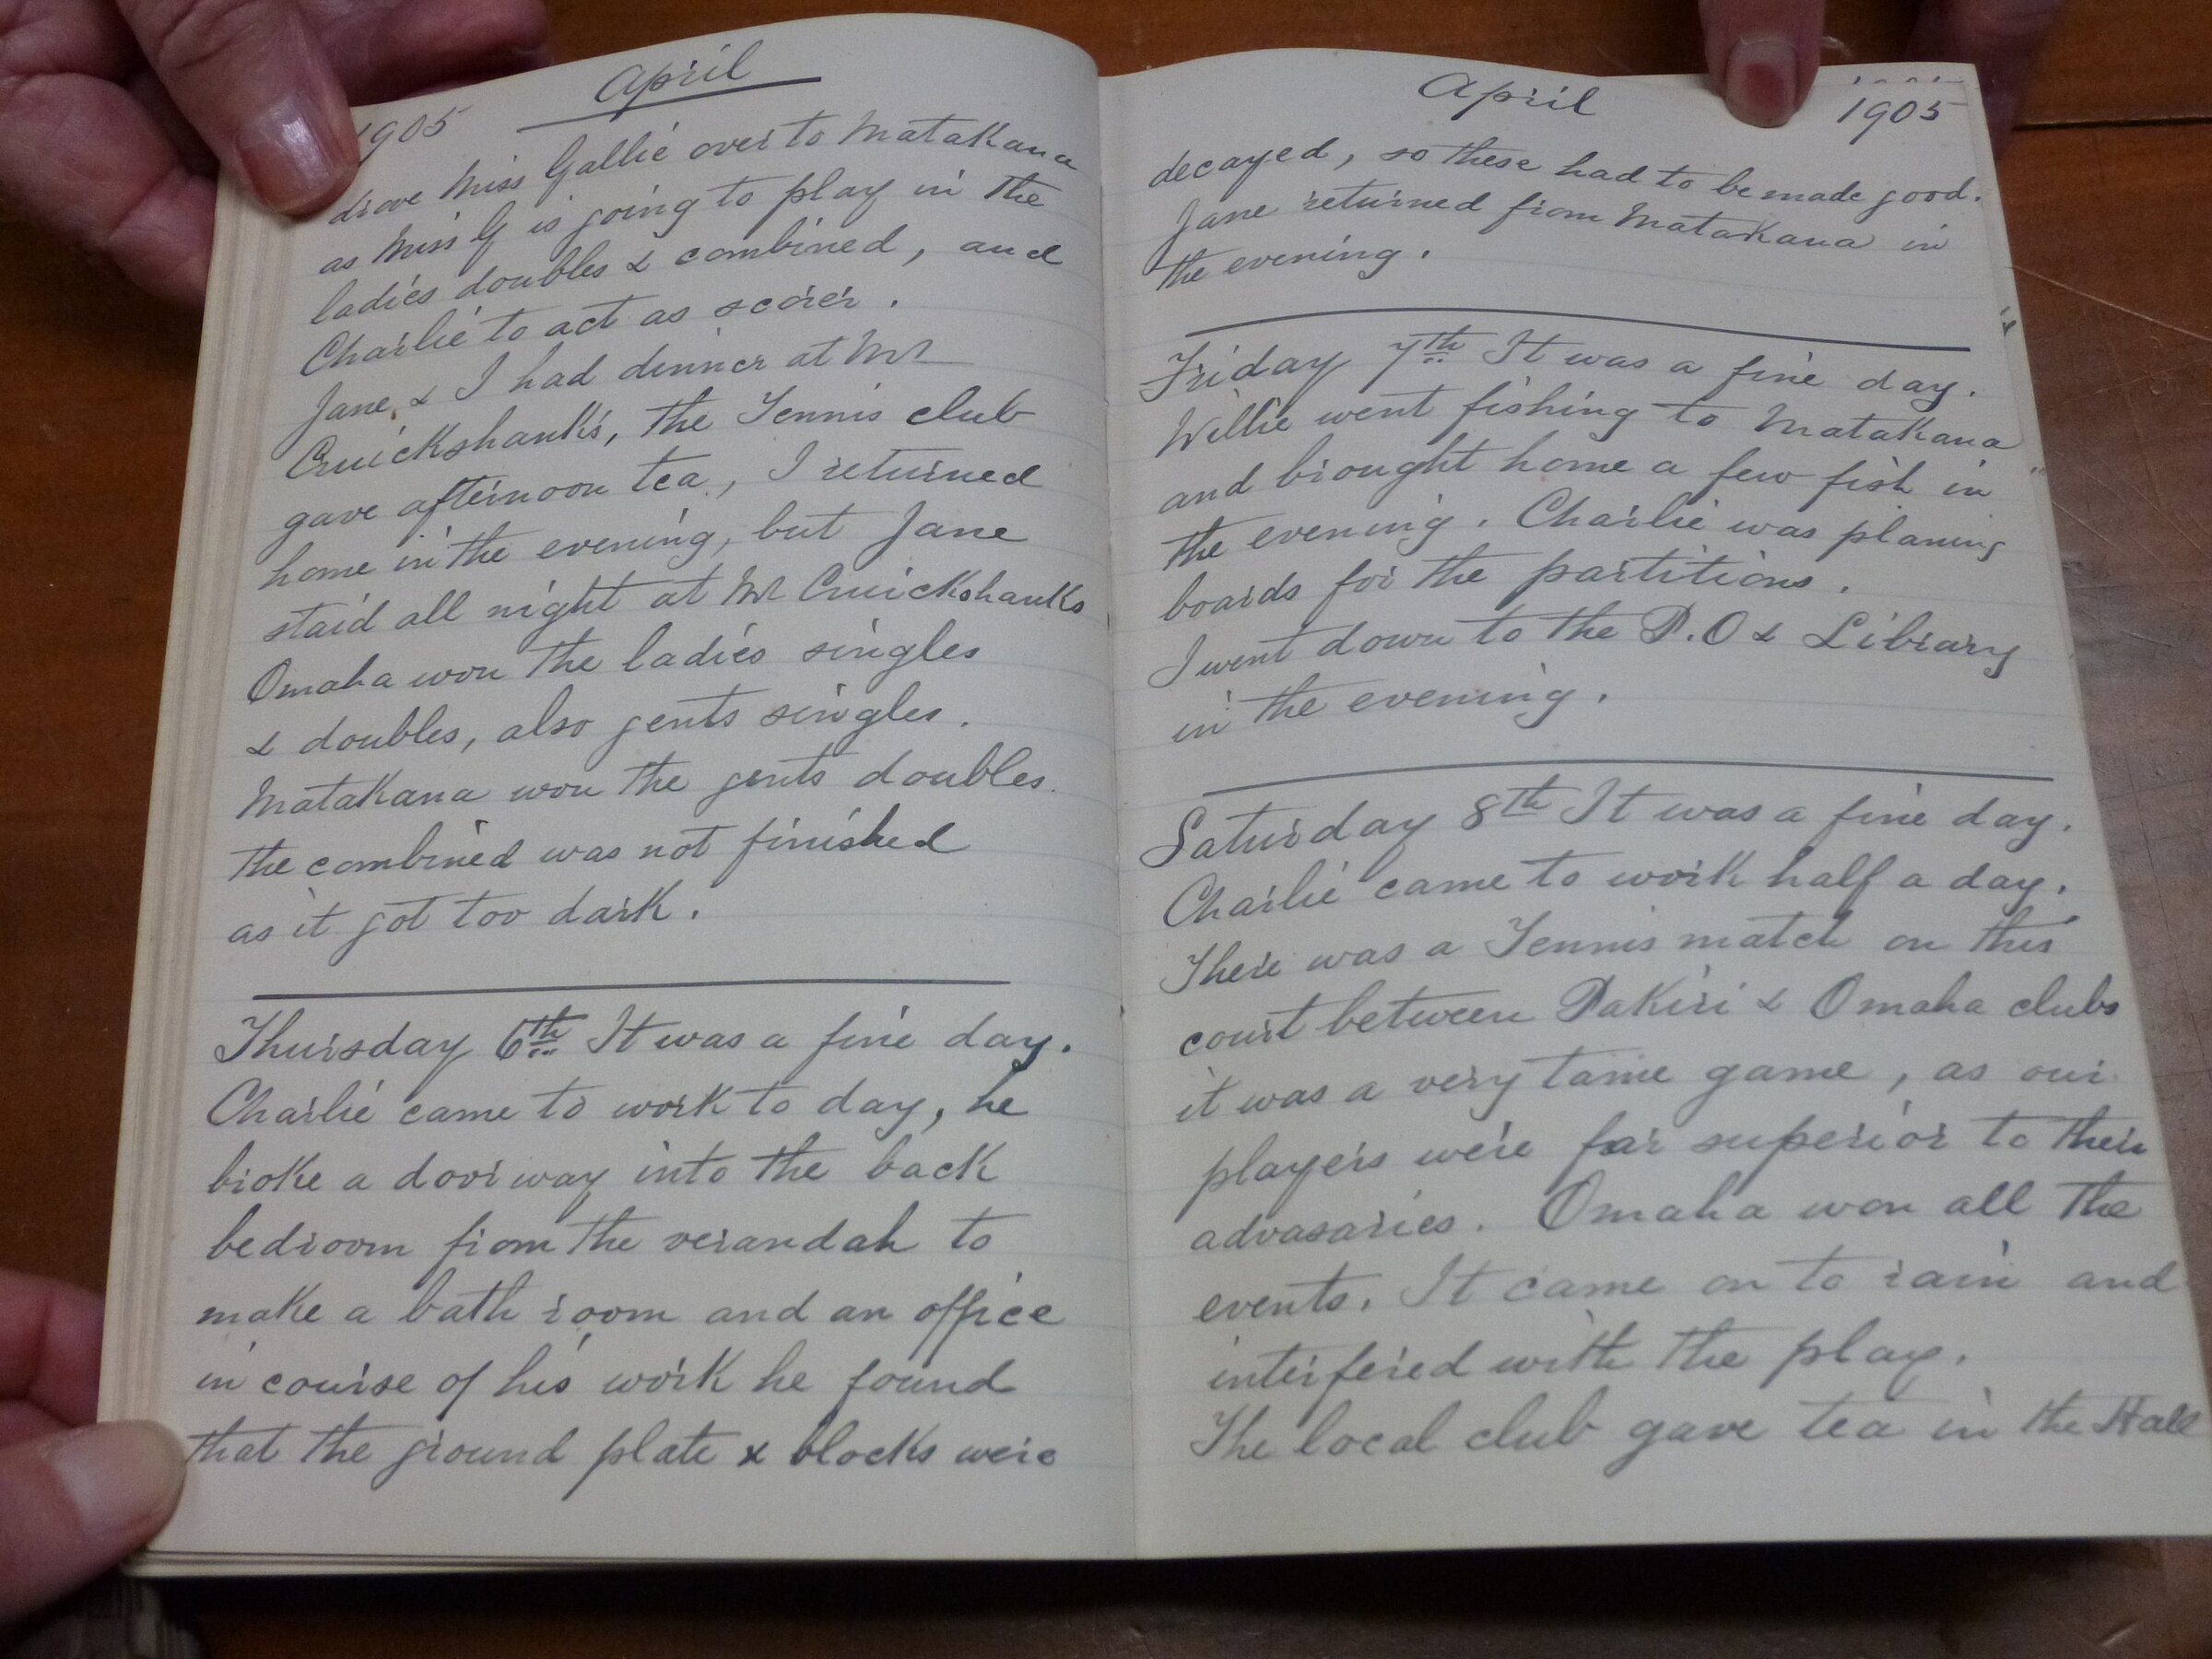 1905
April
drove Miss Gallie over to Matakana
as Miss G is going to play in the
ladies doubles & combined, and
Charlie to act as scorer.
Jane, & I had dinner at Mr
Cruickshanks, the Tennis club
gave afternoon tea, I returned
home in the evening, but Jane
staid all night at Mr Cruickshanks
Omaha won the ladies singles
& doubles, also gents singles.
Matakana won the gents doubles.
the combined was not finished
as it got too dark.
Thursday 6th It was a fine day.
Charlie came to work to day, he
broke a doorway into the back
bedroom from the verandah to
make a bath room and an office
in course of his work he found
that the ground plate & blocks were
April
1905
decayed, so these had to be made good.
Jane returned from Matakana in
the evening.
Friday 7th It was a fine day.
Willie went fishing to Matakana
and brought home a few fish in
the evening. Charlie was planing
boards for the partitions.
I went down to the P.O & Library
in the evening.
Saturday 8th It was a fine day.
Charlie came to work half a day.
There was a Tennis match on this
court between Pakiri & Omaha clubs
it was a very tame game, as our
players were far superior to their
advasaries. Omaha won all the
events. It came on to rain and
interfered with the play.
The local club gave tea in the Hall